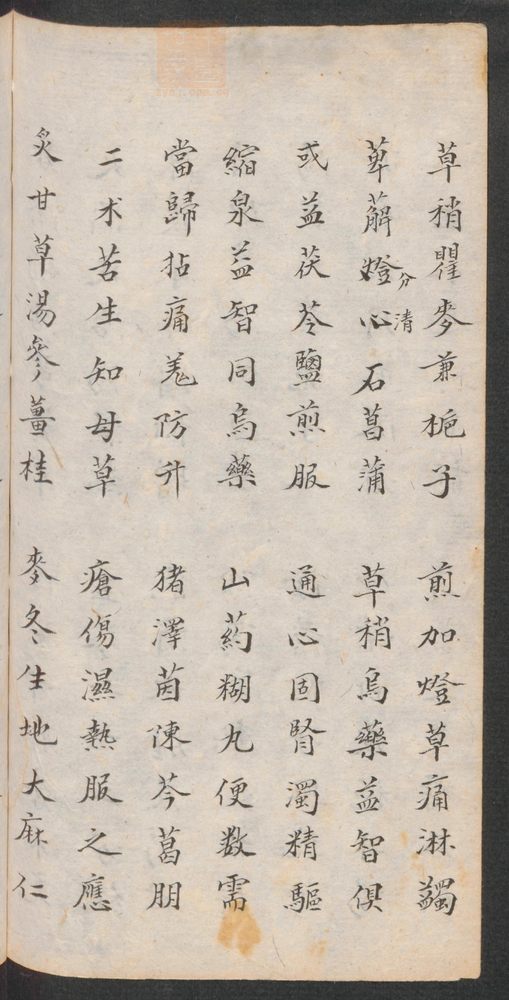 草稍瞿麥兼梔子 煎加燈草痛淋蠲
萆薢燈心石菖蒲 草稍烏藥益智俱
分清
或益茯苓鹽煎服 通心固腎濁精驅
縮泉益智同烏藥 山葯糊丸便数需
當歸拈痛羗防升 猪澤茵陳芩葛朋
二术苦生知母草 瘡傷濕熱服之應
炙甘草湯參薑桂 麥冬生地大麻仁